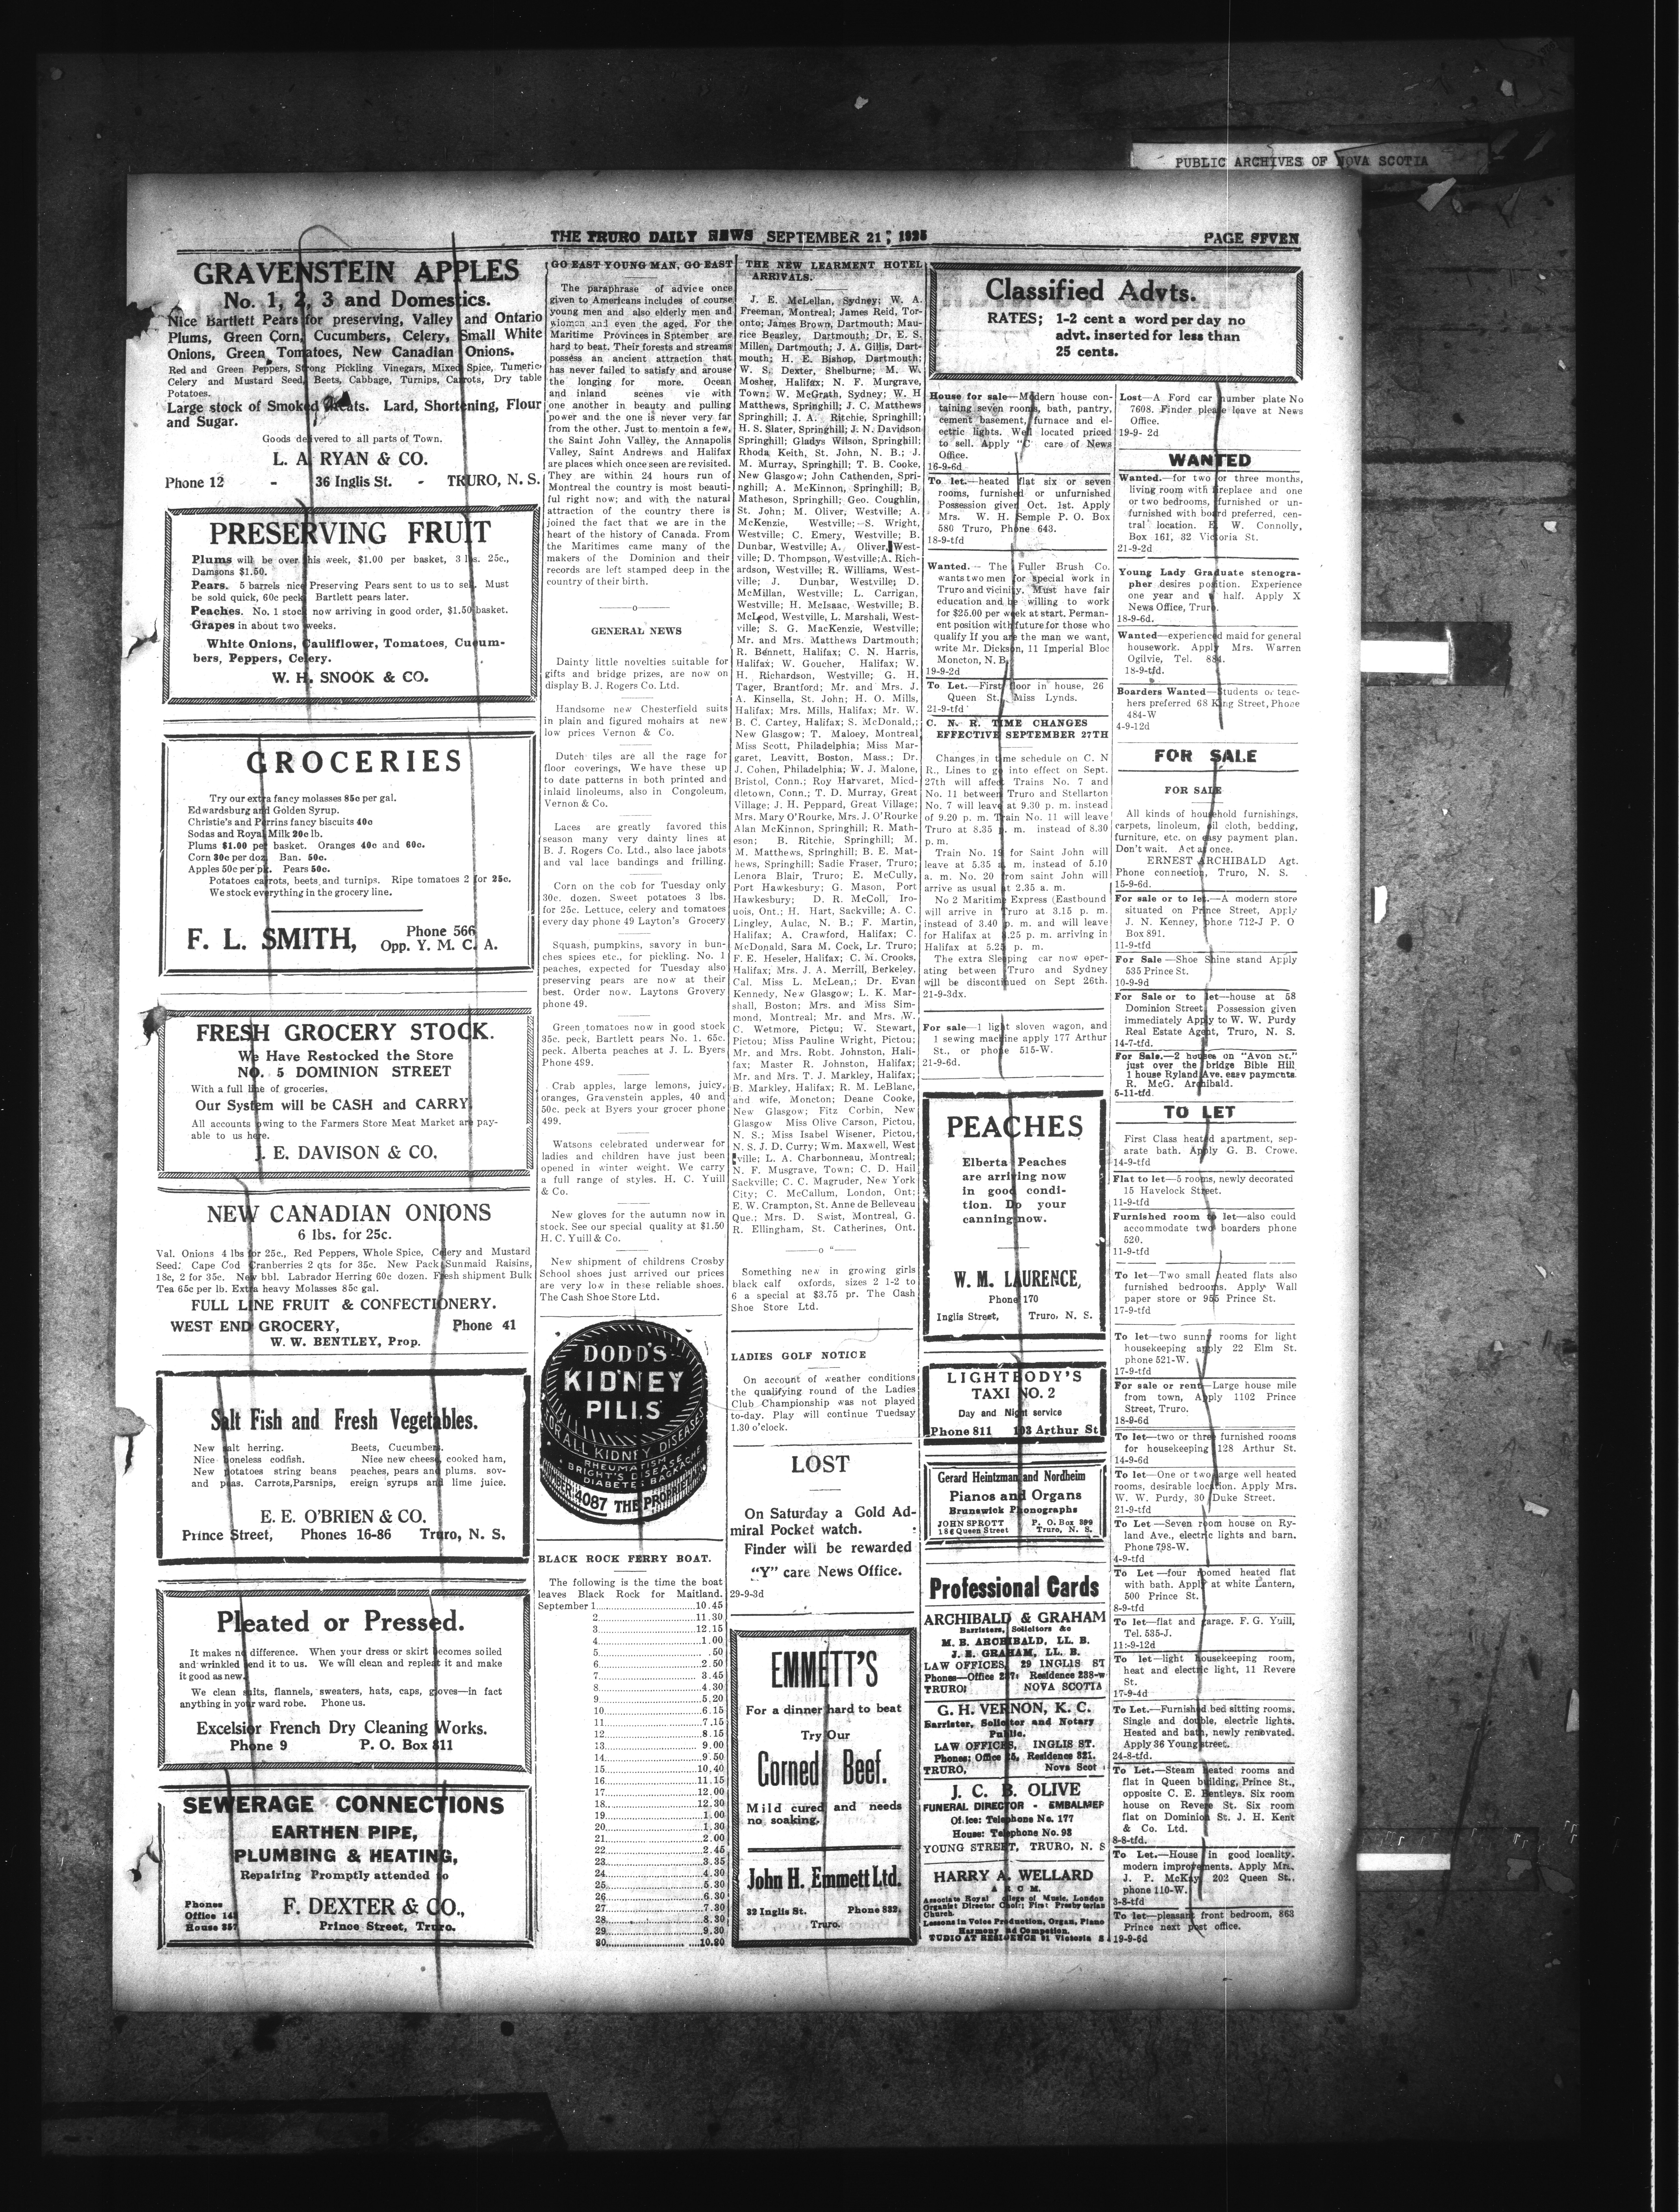 PUBLIC ARCHIVES OF NOVA SCOTIA
THE TRURO DAILY NEWS SEPTEMBER 21, 1925
PAGE SEVEN
GRAVENSTEIN APPLES
No. 1, 2, 3 and Domestics.
Nice Bartlett Pears for preserving, Valley and Ontario
Plums, Green Corn, Cucumbers, Celery, Small White
Onions, Green Tomatoes, New Canadian Onions.
Red and Green Peppers, Strong Pickling Vinegars, Mixed Spice, Tumeric
Celery and Mustard Seed, Beets, Cabbage, Turnips, Carrots, Dry table
Potatoes.
Large stock of Smoked Meats. Lard, Shortening, Flour
and Sugar.
Goods delivered to all parts of Town.
L. A. RYAN & CO.
Phone 12 - 36 Inglis St. - TRURO, N. S.
PRESERVING FRUIT
Plums will be over this week, $1.00 per basket, 3 lbs. 25c.,
Damsons $1.50.
Pears. 5 barrels nice Preserving Pears sent to us to sell. Must
be sold quick, 60c peck Bartlett pears later.
Peaches. No. 1 stock now arriving in good order, $1.50 basket.
Grapes in about two weeks.
White Onions, Cauliflower, Tomatoes, Cucum-
bers, Peppers, Celery.
W. H. SNOOK & CO.
GROCERIES
Try our extra fancy molasses 85c per gal.
Edwardsburg and Golden Syrup.
Christie's and Perrins fancy biscuits 40c
Sodas and Royal Milk 20c lb.
Plums $1.00 per basket. Oranges 40c and 60c.
Corn 30c per doz. Ban. 50c.
Apples 50c per pk. Pears 50c.
Potatoes carrots, beets and turnips. Ripe tomatoes 2 for 25c.
We stock everything in the grocery line.
F. L. SMITH,
Phone 566
Opp. Y. M. C. A.
FRESH GROCERY STOCK.
We Have Restocked the Store
NO. 5 DOMINION STREET
With a full line of groceries.
Our System will be CASH and CARRY
All accounts owing to the Farmers Store Meat Market are pay-
able to us here.
J. E. DAVISON & CO.
NEW CANADIAN ONIONS
6 lbs. for 25c.
Val. Onions 4 lbs for 25c., Red Peppers, Whole Spice, Celery and Mustard
Seed. Cape Cod Cranberries 2 qts for 35c. New Pack Sunmaid Raisins,
18c, 2 for 35c. New bbl. Labrador Herring 60c dozen. Fresh shipment Bulk
Tea 65c per lb. Extra heavy Molasses 85c gal.
FULL LINE FRUIT & CONFECTIONERY.
WEST END GROCERY, Phone 41
W. W. BENTLEY, Prop.
Salt Fish and Fresh Vegetables.
New salt herring.
Nice boneless codfish.
New potatoes string beans
and peas. Carrots, Parsnips,
Beets, Cucumbers.
Nice new cheese, cooked ham,
peaches, pears and plums. sov-
ereign syrups and lime juice.
E. E. O'BRIEN & CO.
Prince Street, Phones 16-86 Truro, N. S.
Pleated or Pressed.
It makes no difference. When your dress or skirt becomes soiled
and wrinkled send it to us. We will clean and repleat it and make
it good as new.
We clean suits, flannels, sweaters, hats, caps, gloves—in fact
anything in your ward robe. Phone us.
Excelsior French Dry Cleaning Works.
Phone 9 P. O. Box 811
SEWERAGE CONNECTIONS
EARTHEN PIPE,
PLUMBING & HEATING,
Repairing Promptly attended to
Phones
Office 148
House 357
F. DEXTER & CO.,
Prince Street, Truro.
GO EAST YOUNG MAN, GO EAST
The paraphrase of advice once
given to Americans includes of course
young men and also elderly men and
women and even the aged. For the
Maritime Provinces in Sptember are
hard to beat. Their forests and streams
possess an ancient attraction that
has never failed to satisfy and arouse
the longing for more. Ocean
and inland scenes vie with
one another in beauty and pulling
power and the one is never very far
from the other. Just to mentoin a few,
the Saint John Valley, the Annapolis
Valley, Saint Andrews and Halifax
are places which once seen are revisited.
They are within 24 hours run of
Montreal the country is most beauti-
ful right now; and with the natural
attraction of the country there is
joined the fact that we are in the
heart of the history of Canada. From
the Maritimes came many of the
makers of the Dominion and their
records are left stamped deep in the
country of their birth.
—o—
GENERAL NEWS
Dainty little novelties suitable for
gifts and bridge prizes, are now on
display B. J. Rogers Co. Ltd.
Handsome new Chesterfield suits
in plain and figured mohairs at new
low prices Vernon & Co.
Dutch tiles are all the rage for
floor coverings, We have these up
to date patterns in both printed and
inlaid linoleums, also in Congoleum,
Vernon & Co.
Laces are greatly favored this
season many very dainty lines at
B. J. Rogers Co. Ltd., also lace jabots
and val lace bandings and frilling.
Corn on the cob for Tuesday only
30c. dozen. Sweet potatoes 3 lbs.
for 25c. Lettuce, celery and tomatoes
every day phone 49 Layton's Grocery
Squash, pumpkins, savory in bun-
ches spices etc., for pickling. No. 1
peaches, expected for Tuesday also
preserving pears are now at their
best. Order now. Laytons Grovery
phone 49.
Green tomatoes now in good stock
35c. peck, Bartlett pears No. 1, 65c.
peck. Alberta peaches at J. L. Byers
Phone 499.
Crab apples, large lemons, juicy,
oranges, Gravenstein apples, 40 and
50c. peck at Byers your grocer phone
499.
Watsons celebrated underwear for
ladies and children have just been
opened in winter weight. We carry
a full range of styles. H. C. Yuill
& Co.
New gloves for the autumn now in
stock. See our special quality at $1.50
H. C. Yuill & Co.
New shipment of childrens Crosby
School shoes just arrived our prices
are very low in these reliable shoes.
The Cash Shoe Store Ltd.
DODD'S
KIDNEY
PILLS
FOR ALL KIDNEY DISEASES
RHEUMATISM
BRIGHT'S DISEASE
DIABETES BACKACHE
4087 THE PROPR
BLACK ROCK FERRY BOAT.
The following is the time the boat
leaves Black Rock for Maitland.
September 1 10.45
2 11.30
3 12.15
4 1.00
5 .50
6 2.50
7 3.45
8 4.30
9 5.20
10 6.15
11 7.15
12 8.15
13 9.00
14 9.50
15 10.40
16 11.15
17 12.00
18 12.30
19 1.00
20 1.30
21 2.00
22 2.45
23 3.35
24 4.30
25 5.30
26 6.30
27 7.30
28 8.30
29 9.30
30 10.20
THE NEW LEARMENT HOTEL
ARRIVALS.
J. E. McLellan, Sydney; W. A.
Freeman, Montreal; James Reid, Tor-
onto; James Brown, Dartmouth; Mau-
rice Beazley, Dartmouth; Dr. E. S.
Millen, Dartmouth; J. A. Gillis, Dart-
mouth; H. E. Bishop, Dartmouth;
W. S. Dexter, Shelburne; M. W.
Mosher, Halifax; N. F. Murgrave,
Town; W. McGrath, Sydney; W. H
Matthews, Springhill; J. C. Matthews
Springhill; J. A. Ritchie, Springhill;
H. S. Slater, Springhill; J. N. Davidson
Springhill; Gladys Wilson, Springhill;
Rhoda Keith, St. John, N. B.; J.
M. Murray, Springhill; T. B. Cooke,
New Glasgow; John Cathenden, Spri-
nghill; A. McKinnon, Springhill; B.
Matheson, Springhill; Geo. Coughlin,
St. John; M. Oliver, Westville; A.
McKenzie, Westville; S. Wright,
Westville; C. Emery, Westville; B.
Dunbar, Westville; A. Oliver, West-
ville; D. Thompson, Westville; A. Rich-
ardson, Westville; R. Williams, West-
ville; J. Dunbar, Westville; D.
McMillan, Westville; L. Carrigan,
Westville; H. McIsaac, Westville; B.
McLeod, Westville, L. Marshall, West-
ville; S. G. MacKenzie, Westville;
Mr. and Mrs. Matthews Dartmouth;
R. Bennett, Halifax; C. N. Harris,
Halifax; W. Goucher, Halifax; W.
H. Richardson, Westville; G. H.
Tager, Brantford; Mr. and Mrs. J.
A. Kinsella, St. John; H. O. Mills,
Halifax; Mrs. Mills, Halifax; Mr. W.
B. C. Cartey, Halifax; S. McDonald,;
New Glasgow; T. Maloey, Montreal
Miss Scott, Philadelphia; Miss Mar-
garet, Leavitt, Boston, Mass.; Dr.
J. Cohen, Philadelphia; W. J. Malone,
Bristol, Conn.; Roy Harvaret, Micd-
dletown, Conn.; T. D. Murray, Great
Village; J. H. Peppard, Great Village;
Mrs. Mary O'Rourke, Mrs. J. O'Rourke
Alan McKinnon, Springhill; R. Math-
eson; B. Ritchie, Springhill; M.
M. Matthews, Springhill; B. E. Mat-
hews, Springhill; Sadie Fraser, Truro;
Lenora Blair, Truro; E. McCully,
Port Hawkesbury; G. Mason, Port
Hawkesbury; D. R. McColl, Iro-
uois, Ont.; H. Hart, Sackville; A. C.
Lingley, Aulac, N. B.; F. Martin,
Halifax; A. Crawford, Halifax; C.
McDonald, Sara M. Cock, Lr. Truro;
F. E. Heseler, Halifax; C. M. Crooks,
Halifax; Mrs. J. A. Merrill, Berkeley,
Cal. Miss L. McLean,; Dr. Evan
Kennedy, New Glasgow; L. K. Mar-
shall, Boston; Mrs. and Miss Sim-
mond, Montreal; Mr. and Mrs. W.
C. Wetmore, Pictou; W. Stewart,
Pictou; Miss Pauline Wright, Pictou;
Mr. and Mrs. Robt. Johnston, Hali-
fax; Master R. Johnston, Halifax;
Mr. and Mrs. T. J. Markley, Halifax;
B. Markley, Halifax; R. M. LeBlanc,
and wife, Moncton; Deane Cooke,
New Glasgow; Fitz Corbin, New
Glasgow Miss Olive Carson, Pictou,
N. S.; Miss Isabel Wisener, Pictou,
N. S. J. D. Curry; Wm. Maxwell, West
ville; L. A. Charbonneau, Montreal;
N. F. Musgrave, Town; C. D. Hail
Sackville; C. C. Magruder, New York
City; C. McCallum, London, Ont;
E. W. Crampton, St. Anne de Belleveau
Que.; Mrs. D. Swist, Montreal, G.
R. Ellingham, St. Catherines, Ont.
—o—
Something new in growing girls
black calf oxfords, sizes 2 1-2 to
6 a special at $3.75 pr. The Cash
Shoe Store Ltd.
LADIES GOLF NOTICE
On account of weather conditions
the qualifying round of the Ladies
Club Championship was not played
to-day. Play will continue Tuedsay
1.30 o'clock.
LOST
On Saturday a Gold Ad-
miral Pocket watch.
Finder will be rewarded
"Y" care News Office.
29-9-3d
EMMETT'S
For a dinner hard to beat
Try Our
Corned Beef.
Mild cured and needs
no soaking.
John H. Emmett Ltd.
32 Inglis St. Phone 832,
Truro.
Classified Advts.
RATES; 1-2 cent a word per day no
advt. inserted for less than
25 cents.
House for sale—Modern house con-
taining seven rooms, bath, pantry,
cement basement, furnace and el-
ectric lights. Well located priced
to sell. Apply "C" care of News
Office.
16-9-6d
To let.—heated flat six or seven
rooms, furnished or unfurnished
Possession given Oct. 1st. Apply
Mrs. W. H. Semple P. O. Box
580 Truro, Phone 643.
18-9-tfd
Wanted.—The Fuller Brush Co.
wants two men for special work in
Truro and vicinity. Must have fair
education and be willing to work
for $25.00 per week at start. Perman-
ent position with future for those who
qualify If you are the man we want,
write Mr. Dickson, 11 Imperial Bloc
Moncton, N. B.
19-9-2d
To Let.—First floor in house, 26
Queen St., Miss Lynds.
21-9-tfd
C. N. R. TIME CHANGES
EFFECTIVE SEPTEMBER 27TH
Changes in time schedule on C. N
R., Lines to go into effect on Sept.
27th will affect Trains No. 7 and
No. 11 between Truro and Stellarton
No. 7 will leave at 9.30 p. m. instead
of 9.20 p. m. Train No. 11 will leave
Truro at 8.35 p. m. instead of 8.30
p. m.
Train No. 19 for Saint John will
leave at 5.35 a. m. instead of 5.10
a. m. No. 20 from saint John will
arrive as usual at 2.35 a. m.
No 2 Maritime Express (Eastbound
will arrive in Truro at 3.15 p. m.
instead of 3.40 p. m. and will leave
for Halifax at 3.25 p. m. arriving in
Halifax at 5.25 p. m.
The extra Sleeping car now oper-
ating between Truro and Sydney
will be discontinued on Sept 26th.
21-9-3dx.
For sale—1 light sloven wagon, and
1 sewing machine apply 177 Arthur
St., or phone 515-W.
21-9-6d.
PEACHES
Elberta Peaches
are arriving now
in good condi-
tion. Do your
canning now.
W. M. LAURENCE,
Phone 170
Inglis Street, Truro, N. S.
LIGHTBODY'S
TAXI NO. 2
Day and Night service
Phone 811 103 Arthur St
Gerard Heintzman and Nordheim
Pianos and Organs
Brunswick Phonographs
JOHN SPROTT P. O. Box 399
186 Queen Street Truro, N. S.
Professional Cards
ARCHIBALD & GRAHAM
Barristers, Solicitors &c
M. B. ARCHIBALD, LL. B.
J. E. GRAHAM, LL. B.
LAW OFFICES, 29 INGLIS ST
Phones—Office 287; Residence 238-w
TRURO: NOVA SCOTIA
G. H. VERNON, K. C.
Barrister, Solicitor and Notary
Public.
LAW OFFICES, INGLIS ST.
Phones; Office 25, Residence 821.
TRURO, Nova Scot
J. C. B. OLIVE
FUNERAL DIRECTOR - EMBALMER
Office: Telephone No. 177
House: Telephone No. 98
YOUNG STREET, TRURO, N. S
HARRY A. WELLARD
A R C M.
Associate Royal College of Music, London
Organist Director Choir; First Presbyterian
Church.
Lessons in Voice Production, Organ, Piano
Harmony and Competion.
TUDIO AT RESIDENCE 91 Victoria S
Lost—A Ford car number plate No
7608. Finder please leave at News
Office.
19-9- 2d
WANTED
Wanted.—for two or three months,
living room with fireplace and one
or two bedrooms, furnished or un-
furnished with board preferred, cen-
tral location. E. W. Connolly,
Box 161, 32 Victoria St.
21-9-2d
Young Lady Graduate stenogra-
pher desires position. Experience
one year and a half. Apply X
News Office, Truro.
18-9-6d.
Wanted—experienced maid for general
housework. Apply Mrs. Warren
Ogilvie, Tel. 884.
18-9-tfd.
Boarders Wanted—Students or teac-
hers preferred 68 King Street, Phone
484-W
4-9-12d
FOR SALE
FOR SALE
All kinds of household furnishings,
carpets, linoleum, oil cloth, bedding,
furniture, etc. on easy payment plan.
Don't wait. Act at once.
ERNEST ARCHIBALD Agt.
Phone connection, Truro, N. S.
15-9-6d.
For sale or to let.—A modern store
situated on Prince Street, Apply
J. N. Kenney, phone 712-J P. O
Box 891.
11-9-tfd
For Sale—Shoe Shine stand Apply
535 Prince St.
10-9-9d
For Sale or to let—house at 58
Dominion Street. Possession given
immediately Apply to W. W. Purdy
Real Estate Agent, Truro, N. S.
14-7-tfd.
For Sale.—2 houses on "Avon St."
just over the bridge Bible Hill
1 house Ryland Ave. easy payments.
R. McG. Archibald.
5-11-tfd.
TO LET
First Class heated apartment, sep-
arate bath. Apply G. B. Crowe.
14-9-tfd
Flat to let—5 rooms, newly decorated
15 Havelock Street.
11-9-tfd
Furnished room to let—also could
accommodate two boarders phone
520.
11-9-tfd
To let—Two small heated flats also
furnished bedrooms. Apply Wall
paper store or 955 Prince St.
17-9-tfd
To let—two sunny rooms for light
housekeeping apply 22 Elm St.
phone 521-W.
17-9-tfd
For sale or rent—Large house mile
from town, Apply 1102 Prince
Street, Truro.
18-9-6d
To let—two or three furnished rooms
for housekeeping 128 Arthur St.
14-9-6d
To let—One or two large well heated
rooms, desirable location. Apply Mrs.
W. W. Purdy, 30 Duke Street.
21-9-tfd
To let—Seven room house on Ry-
land Ave., electric lights and barn.
Phone 798-W.
4-9-tfd
To Let—four roomed heated flat
with bath. Apply at white Lantern,
500 Prince St.
8-9-tfd
To let—flat and garage. F. G. Yuill,
Tel. 535-J.
11:-9-12d
To let—light housekeeping room,
heat and electric light, 11 Revere
St.
17-9-4d
To Let.—Furnished bed sitting rooms.
Single and double, electric lights.
Heated and bath, newly renovated.
Apply 36 Young street.
24-8-tfd.
To Let.—Steam heated rooms and
flat in Queen building, Prince St.,
opposite C. E. Bentleys. Six room
house on Revere St. Six room
flat on Dominion St. J. H. Kent
& Co. Ltd.
8-8-tfd.
To Let.—House in good locality.
modern improvements. Apply Mrs.
J. P. McKay 202 Queen St.,
phone 110-W.
3-8-tfd
To let—pleasant front bedroom, 863
Prince next post office.
19-9-6d